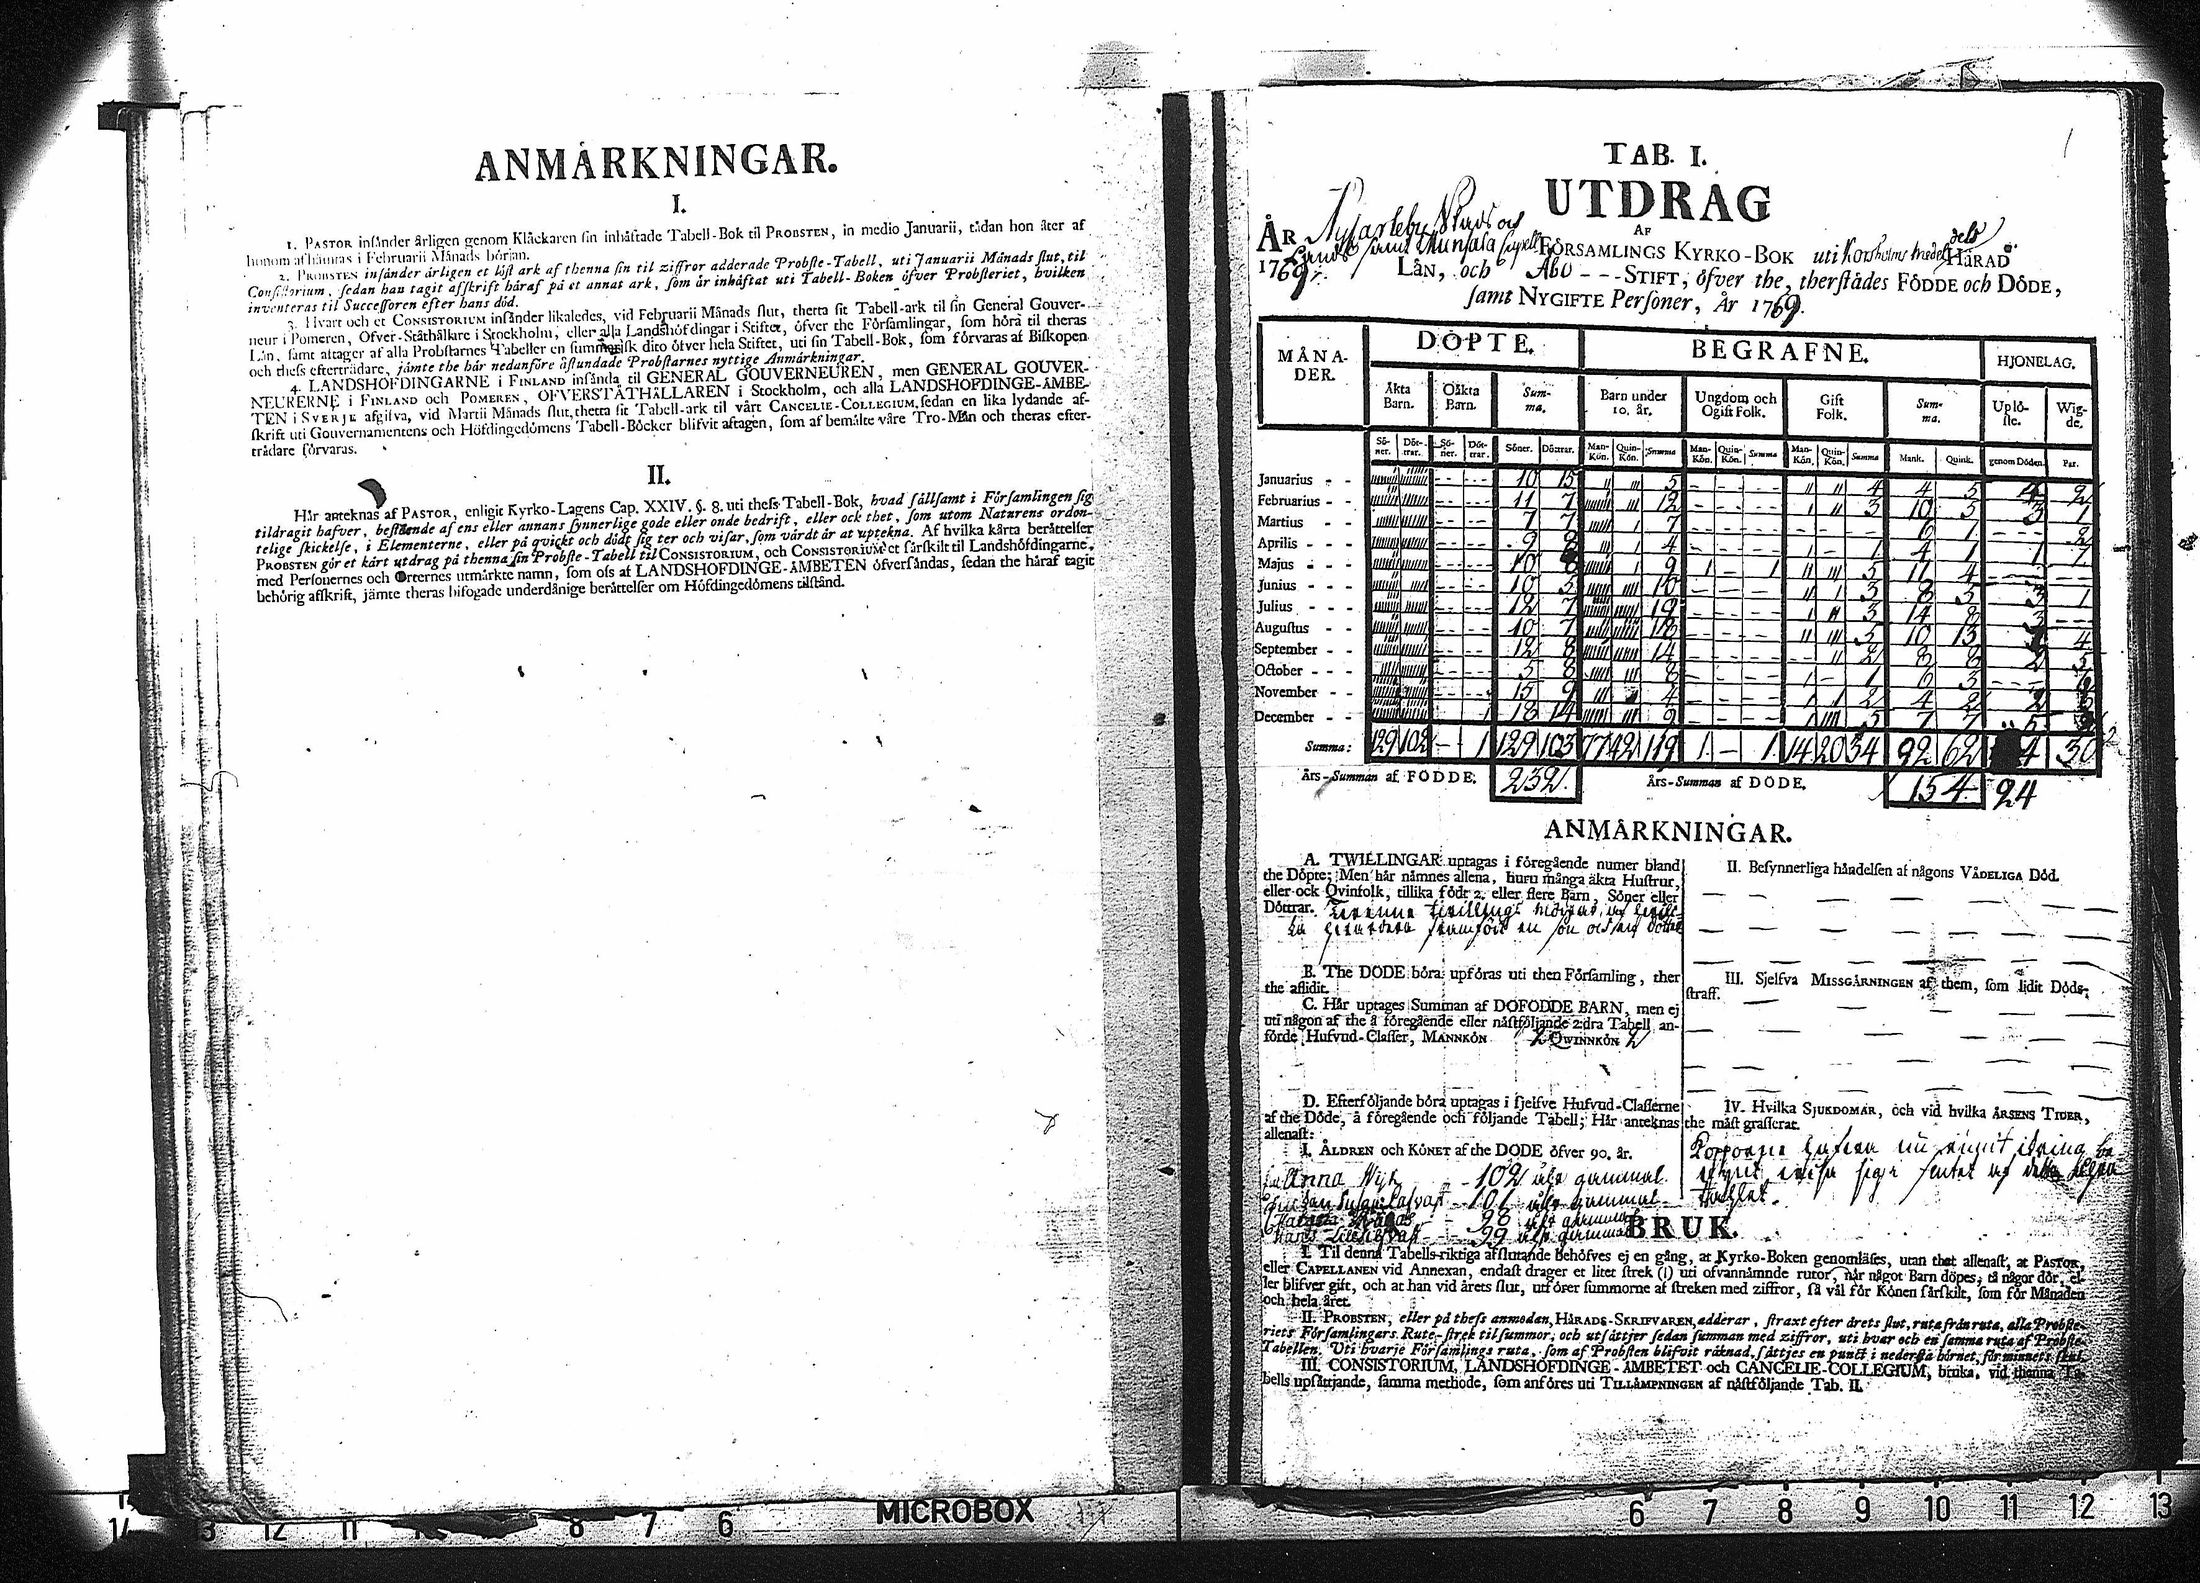 ANMÅRKNINGAR.
I.
1. PASTOR insånder årligen genom Klåckaren sin inhåftade Tabell-Bok til PROBSTEN, in medio Januarii, sådan hon åter af
honom afhåmtas i Februarii Månads början.
2. PROBSTEN insånder årligen et löst ark af thenna sin til ziffror adderade Probste-Tabell, uti Januarii Månads slut, til
Consistorium, sedan han tagit afskrift håraf på et annat ark, som år inhåftat uti Tabell-Boken öfver Probsteriet, hvilken
inventeras til Successoren efter hans död.
3. Hvart och et CONSISTORIUM insånder likaledes, vid Februarii Månads slut, thetta sit Tabell-ark til sin General Gouver-
neur i Pomeren, Öfver-Ståthållare i Stockholm, eller alla Landshöfdingar i Stiftet, öfver the Församlingar, som höra til theras
Lån, samt aftager af alla Probstarnes Tabeller en summarisk dito öfver hela Stiftet, uti sin Tabell-Bok, som förvaras af Biskopen
och thess efterträdare, jåmte the hår nedanföre åstundade Probstarnes nyttige Anmårkningar.
4. LANDSHÖFDINGARNE i FINLAND insånda til GENERAL GOUVERNEUREN, men GENERAL GOUVER-
NEURERNE i FINLAND och POMEREN, ÖFVERSTÅTHÅLLAREN i Stockholm, och alla LANDSHÖFDINGE-ÅMBE-
TEN i SVERJE afgifva, vid Martii Månads slut, thetta sit Tabell-ark til vårt CANCELIE-COLLEGIUM, sedan en lika lydande af-
skrift uti Gouvernamentens och Höfdingedömens Tabell-Böcker blifvit aftagen, som af bemålte våre Tro-Mån och theras efter-
trådare förvaras.
II.
Hår anteknas af PASTOR, enligit Kyrko-Lagens Cap. XXIV. §. 8. uti thess Tabell-Bok, hvad sållsamt i Församlingen sig
tildragit hafver, bestående af ens eller annans synnerlige gode eller onde bedrift, eller ock thet, som utom Naturens ordon-
telige skickelse, i Elementerne, eller på qvickt och dödt sig ter och visar, som vårdt år at uptekna. Af hvilka kårta beråttelser
PROBSTEN gör et kårt utdrag på thenna sin Probste-Tabell til CONSISTORIUM, och CONSISTORIUM et sårskilt til Landshöfdingarne,
med Personernes och Orternes utmårkte namn, som oss af LANDSHÖFDINGE-ÅMBETEN öfversåndas, sedan the håraf tagit
behörig afskrift, jåmte theras bifogade underdånige beråttelser om Höfdingedömens tilstånd.
TAB. I.
UTDRAG
AF
ÅR Nykarleby Stads och
Lands samt Munsala Capell FÖRSAMLINGS KYRKO-BOK uti Korsholms medeldels HÅRAD
1769. LÅN, och Åbo - - - STIFT, öfver the, therstådes FÖDDE och DÖDE,
samt NYGIFTE Personer, År 1769.
MÅNA-DER. DÖPTE. BEGRAFNE. HJONELAG.
Åkta Barn. Oåkta Barn. Sum-ma. Barn under 10. år. Ungdom och Ogift Folk. Gift Folk. Sum-ma. Uplö-ste. Wig-de.
Sö-ner. Döt-trar. Sö-ner. Döt-trar. Söner. Döttrar. Man-Kön. Quin-Kön. Summa Man-Kön. Quin-Kön. Summa Man-Kön. Quin-Kön. Summa Mank. Quink. genom Döden. Par.
Januarius - - 10 15 5 4 4 5 4 2
Februarius - - 11 7 12 3 10 5 3 1
Martius - - 7 7 7 6 1 2
Aprilis - - 9 8 4 1 4 1 1 1
Majus - - 10 8 9 1 1 5 11 4
Junius - - 10 5 10 3 8 5 3 1
Julius - - 12 7 19 3 14 8 3
Augustus - - 10 7 18 5 10 13 4
September - - 12 8 14 2 8 8 2 5
October - - 5 8 8 1 6 3
November - - 15 9 4 2 4 2 2
December - - 18 14 9 5 7 7 5
Summa: 129 102 - 1 129 103 77 42 119 1 - 1 14 20 34 92 62 30
Års-Summan af FÖDDE. 232. Års-Summan af DÖDE. 154. 24
ANMÅRKNINGAR.
A. TWILLINGAR uptagas i föregående numer bland
the Döpte; Men hår nåmnes allena, huru många åkta Hustrur,
eller ock Qvinfolk, tillika födt 2. eller flere Barn, Söner eller
Döttrar.
B. The DÖDE böra upföras uti then Församling, ther
the aflidit.
C. Hår uptages Summan af DÖFÖDDE BARN, men ej
uti någon af the å föregående eller nåstföljande 2:dra Tabell an-
förde Hufvud-Classer, MANNKÖN 2 QWINNKÖN 2
D. Efterföljande böra uptagas i sjelfve Hufvud-Classerne
af the Döde, å föregående och följande Tabell; Hår anteknas
allenast:
I. ÅLDREN och KÖNET af the DÖDE öfver 90. år.
Anna - 102 åhr gammal.
- 101 åhr gammal
- 98 åhr gammal
- 99 åhr gammal
II. Besynnerliga håndelsen af någons VÅDELIGA Död.
III. Sjelfva MISSGÅRNINGEN af them, som lidit Döds-
straff.
IV. Hvilka SJUKDOMAR, och vid hvilka ÅRSENS TIDER,
the måst grasserat.
BRUK.
I. Til denna Tabells riktiga afslutande behöfves ej en gång, at Kyrko-Boken genomlåses, utan thet allenast, at PASTOR,
eller CAPELLANEN vid Annexan, endast drager et litet strek (I) uti ofvannåmnde rutor, når något Barn döpes, få någor dör, el-
ler blifver gift, och at han vid årets slut, utförer summorne af streken med ziffror, så vål för Könen sårskilt, som för Månaden
och hela året.
II. PROBSTEN, eller på thess anmodan, HÅRADS-SKRIFVAREN, adderar, straxt efter årets slut, ruta från ruta, alla Probste-
riets Församlingars Rute-strek til summor, och utsåttjer sedan summan med ziffror, uti hvar och en samma ruta af Probste-
Tabellen. Uti hvarje Församlings ruta, som af Probsten blifvit råknad, såttjes en punct i nedersta hörnet, för minnets skul.
III. CONSISTORIUM, LANDSHÖFDINGE-ÅMBETET och CANCELIE-COLLEGIUM, bruka, vid thenna Ta-
bells upsåttjande, samma methode, som anföres uti TILLÅMPNINGEN af nåstföljande Tab. II.
MICROBOX